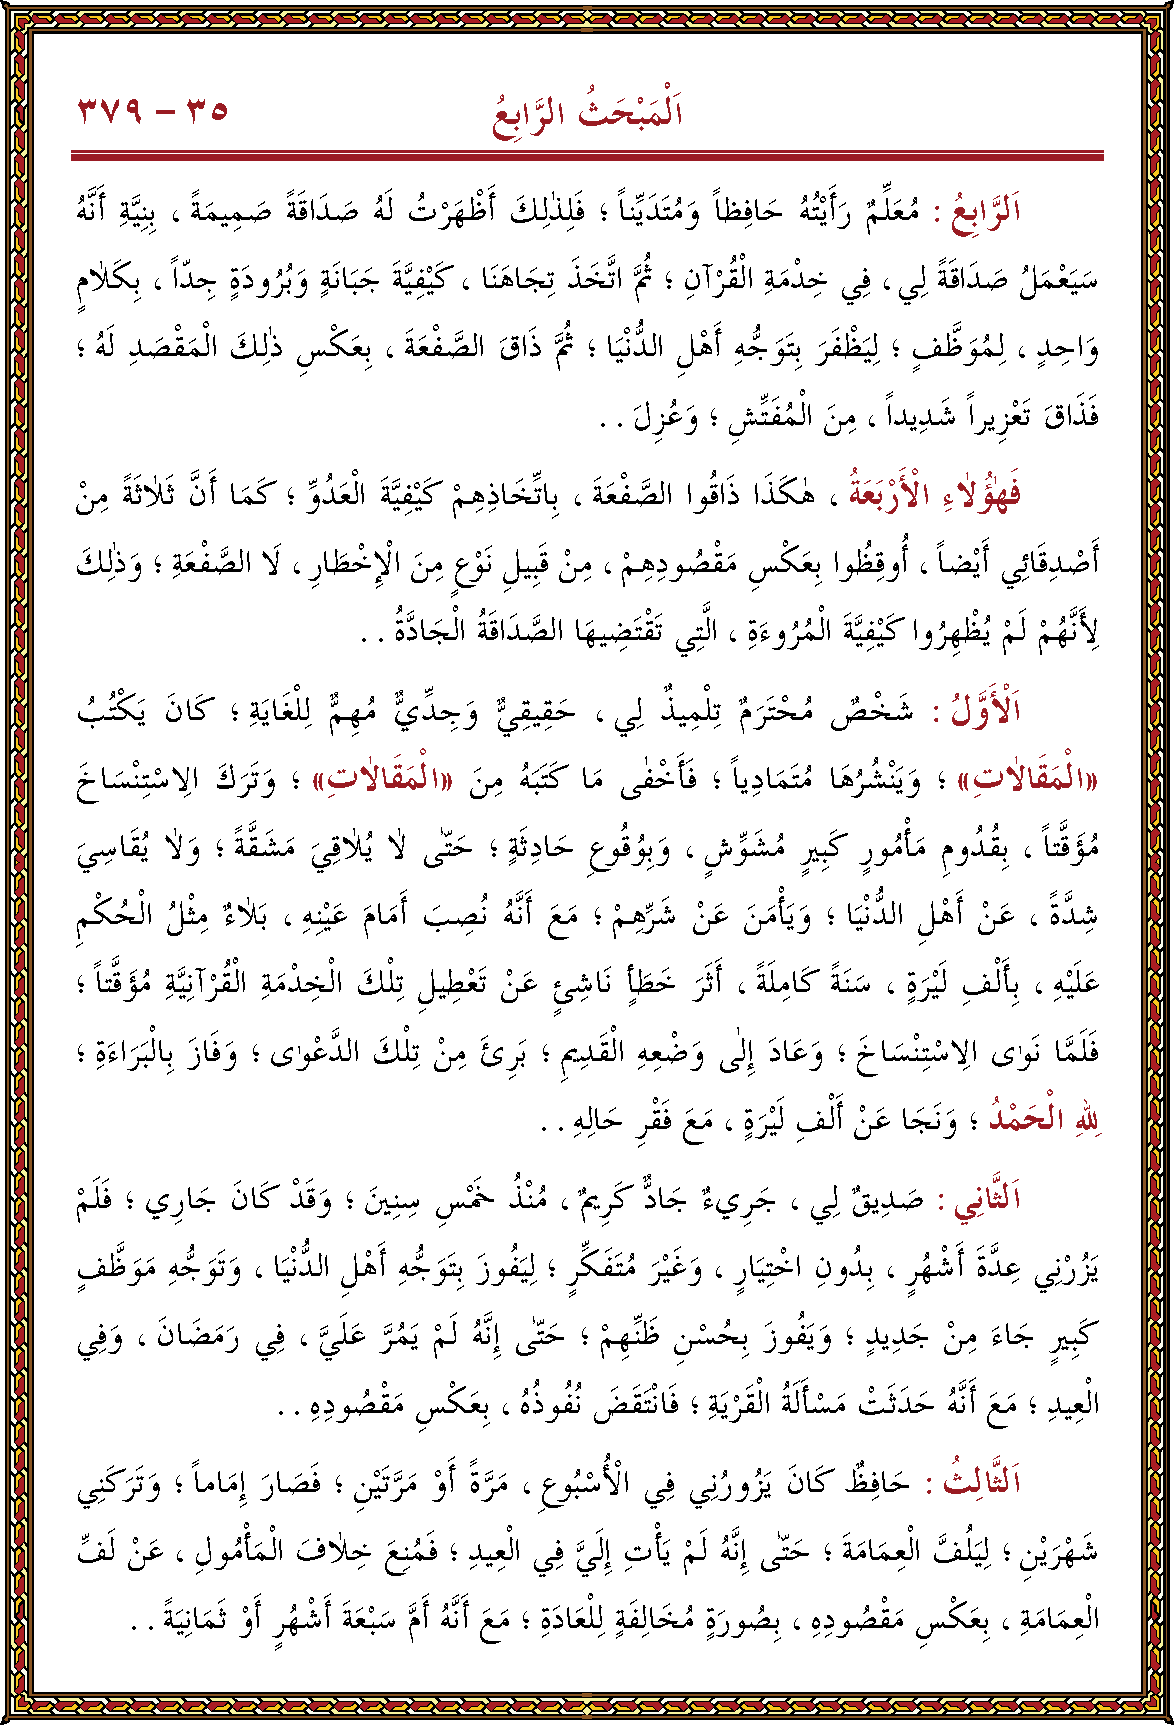 اَلْمَبْحَثُ الرَّابِعُ ٣٥ – ٣٧٩
اَلرَّابِعُ : مُعَلِّمٌ رَأَيْتُهُ حَافِظاً وَمُتَدَيِّناً ؛ فَلِذٰلِكَ أَظْهَرْتُ لَهُ صَدَاقَةً صَمِيمَةً ، بِنِيَّةِ أَنَّهُ
سَيَعْمَلُ صَدَاقَةً لِي ، فِي خِدْمَةِ الْقُرْآنِ ؛ ثُمَّ اتَّخَذَ تِجَاهَنَا ، كَيْفِيَّةَ جَبَانَةٍ وَبُرُودَةٍ جِدّاً ، بِكَلَامٍ
وَاحِدٍ ، لِمُوَظَّفٍ ؛ لِيَظْفَرَ بِتَوَجُّهِ أَهْلِ الدُّنْيَا ؛ ثُمَّ ذَاقَ الصَّفْعَةَ ، بِعَكْسِ ذٰلِكَ الْمَقْصَدِ لَهُ ؛
فَذَاقَ تَعْزِيراً شَدِيداً ، مِنَ الْمُفَتِّشِ ؛ وَعُزِلَ . .
فَهٰؤُلَاءِ الْأَرْبَعَةُ ، هٰكَذَا ذَاقُوا الصَّفْعَةَ ، بِاتِّخَاذِهِمْ كَيْفِيَّةَ الْعَدُوِّ ؛ كَمَا أَنَّ ثَلَاثَةً مِنْ
أَصْدِقَائِي أَيْضاً ، أُوقِظُوا بِعَكْسِ مَقْصُودِهِمْ ، مِنْ قَبِيلِ نَوْعٍ مِنَ الْإِخْطَارِ ، لَا الصَّفْعَةِ ؛ وَذٰلِكَ
لِأَنَّهُمْ لَمْ يُظْهِرُوا كَيْفِيَّةَ الْمُرُوءَةِ ، الَّتِي تَقْتَضِيهَا الصَّدَاقَةُ الْجَادَّةُ . .
اَلْأَوَّلُ : شَخْصٌ مُحْتَرَمٌ تِلْمِيذٌ لِي ، حَقِيقِيٌّ وَجِدِّيٌّ مُهِمٌّ لِلْغَايَةِ ؛ كَانَ يَكْتُبُ
«الْمَقَالَاتِ» ؛ وَيَنْشُرُهَا مُتَمَادِياً ؛ فَأَخْفٰى مَا كَتَبَهُ مِنَ «الْمَقَالَاتِ» ؛ وَتَرَكَ الِاسْتِنْسَاخَ
مُؤَقَّتاً ، بِقُدُومِ مَأْمُورٍ كَبِيرٍ مُشَوِّشٍ ، وَبِوُقُوعِ حَادِثَةٍ ؛ حَتّٰى لَا يُلَاقِيَ مَشَقَّةً ؛ وَلَا يُقَاسِيَ
شِدَّةً ، عَنْ أَهْلِ الدُّنْيَا ؛ وَيَأْمَنَ عَنْ شَرِّهِمْ ؛ مَعَ أَنَّهُ نُصِبَ أَمَامَ عَيْنِهِ ، بَلَاءٌ مِثْلُ الْحُكْمِ
عَلَيْهِ ، بِأَلْفِ لَيْرَةٍ ، سَنَةً كَامِلَةً ، أَثَرَ خَطَأٍ نَاشِئٍ عَنْ تَعْطِيلِ تِلْكَ الْخِدْمَةِ الْقُرْآنِيَّةِ مُؤَقَّتاً ؛
فَلَمَّا نَوٰى الِاسْتِنْسَاخَ ؛ وَعَادَ إِلٰى وَضْعِهِ الْقَدِيمِ ؛ بَرِئَ مِنْ تِلْكَ الدَّعْوٰى ؛ وَفَازَ بِالْبَرَاءَةِ ؛
لِلّٰهِ الْحَمْدُ ؛ وَنَجَا عَنْ أَلْفِ لَيْرَةٍ ، مَعَ فَقْرِ حَالِهِ . .
اَلثَّانِي : صَدِيقٌ لِي ، جَرِيءٌ جَادٌّ كَرِيمٌ ، مُنْذُ خَمْسِ سِنِينَ ؛ وَقَدْ كَانَ جَارِي ؛ فَلَمْ
يَزُرْنِي عِدَّةَ أَشْهُرٍ ، بِدُونِ اخْتِيَارٍ ، وَغَيْرَ مُتَفَكِّرٍ ؛ لِيَفُوزَ بِتَوَجُّهِ أَهْلِ الدُّنْيَا ، وَتَوَجُّهِ مَوَظَّفٍ
كَبِيرٍ جَاءَ مِنْ جَدِيدٍ ؛ وَيَفُوزَ بِحُسْنِ ظَنِّهِمْ ؛ حَتّٰى إِنَّهُ لَمْ يَمُرَّ عَلَيَّ ، فِي رَمَضَانَ ، وَفِي
الْعِيدِ ؛ مَعَ أَنَّهُ حَدَثَتْ مَسْأَلَةُ الْقَرْيَةِ ؛ فَانْتَقَضَ نُفُوذُهُ ، بِعَكْسِ مَقْصُودِهِ . .
اَلثَّالِثُ : حَافِظٌ كَانَ يَزُورُنِي فِي الْأُسْبُوعِ ، مَرَّةً أَوْ مَرَّتَيْنِ ؛ فَصَارَ إِمَاماً ؛ وَتَرَكَنِي
شَهْرَيْنِ ؛ لِيَلُفَّ الْعِمَامَةَ ؛ حَتّٰى إِنَّهُ لَمْ يَأْتِ إِلَيَّ فِي الْعِيدِ ؛ فَمُنِعَ خِلَافَ الْمَأْمُولِ ، عَنْ لَفِّ
الْعِمَامَةِ ، بِعَكْسِ مَقْصُودِهِ ، بِصُورَةٍ مُخَالِفَةٍ لِلْعَادَةِ ؛ مَعَ أَنَّهُ أَمَّ سَبْعَةَ أَشْهُرٍ أَوْ ثَمَانِيَةً . .